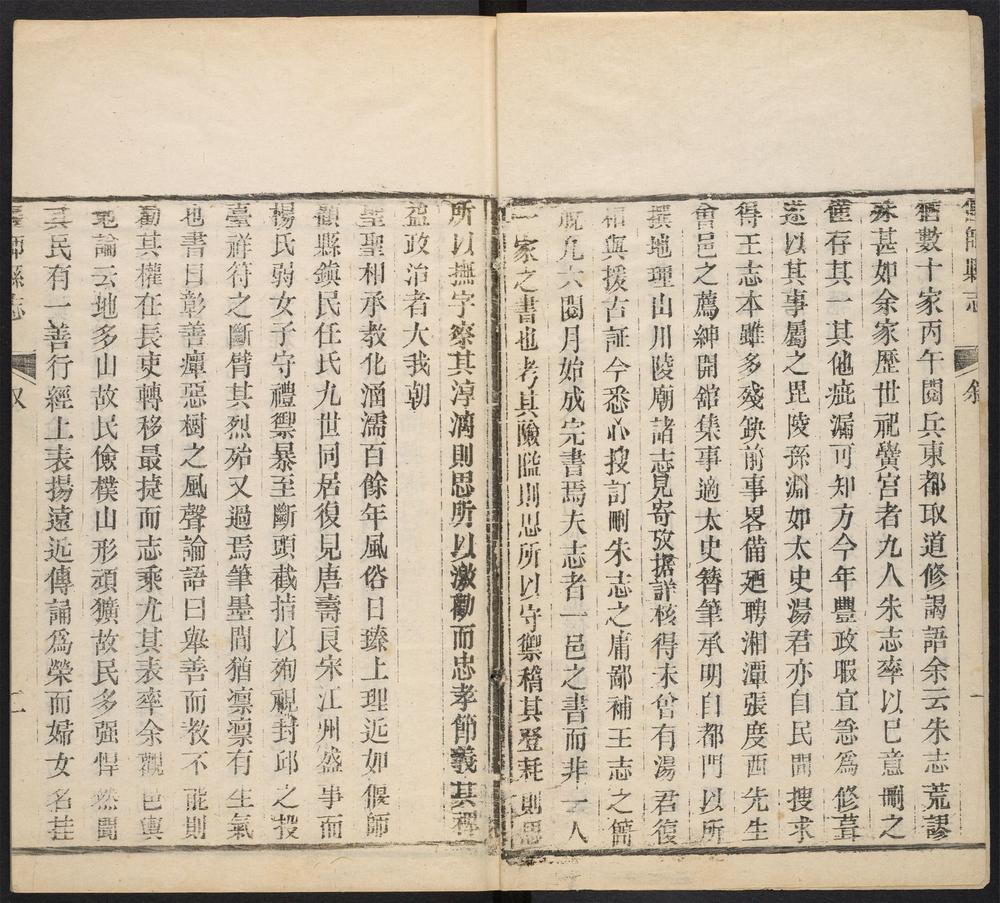 縣志
叙
一
牺數十家丙午閱兵東都取道修謁語余云朱志荒謬
殊甚如余家歷世祀黌宮者九人朱志率以已意刪之
僅存其一其他疵漏可知方今年豐政暇宜急為修葺
遂以其事屬之毘陵孫淵如太史湯君亦自民間搜求
得王志本雖多殘缺前事畧備廼聘湘潭張度西先生
會邑之薦紳開舘集事適太史簪筆承明自都門以所
撰地理山川陵廟諸志見寄攷據詳核得未曾有湯君復
相與援古証今悉心搜訂刪朱志之庸鄙補王志之簡
脫凡六閱月始成完書焉夫志者一邑之書而非一人
一家之書也考其險隘則思所以守禦稽其登耗則思
所以撫字察其淳漓則思所以激勸而忠孝節義其裨
益政治者大我朝
聖聖相承教化涵濡百餘年風俗日臻上理近如偃師
顧縣鎮民任氏九世同居復見唐壽良宋江州盛事而
楊氏弱女子守禮禦暴至斷頭截指以殉視封邱之投
臺祥符之斷臂其烈殆又過焉筆墨間猶凛凛有生氣
也書曰彰善癉惡樹之風聲論語曰舉善而教不能則
勸其權在長吏轉移最捷而志乘尤其表率余觀邑輿
地論云地多山故民儉樸山形頑獷故民多强悍然聞
其民有一善行經上表揚遠近傳誦為榮而婦女名挂
師縣志
叙
二